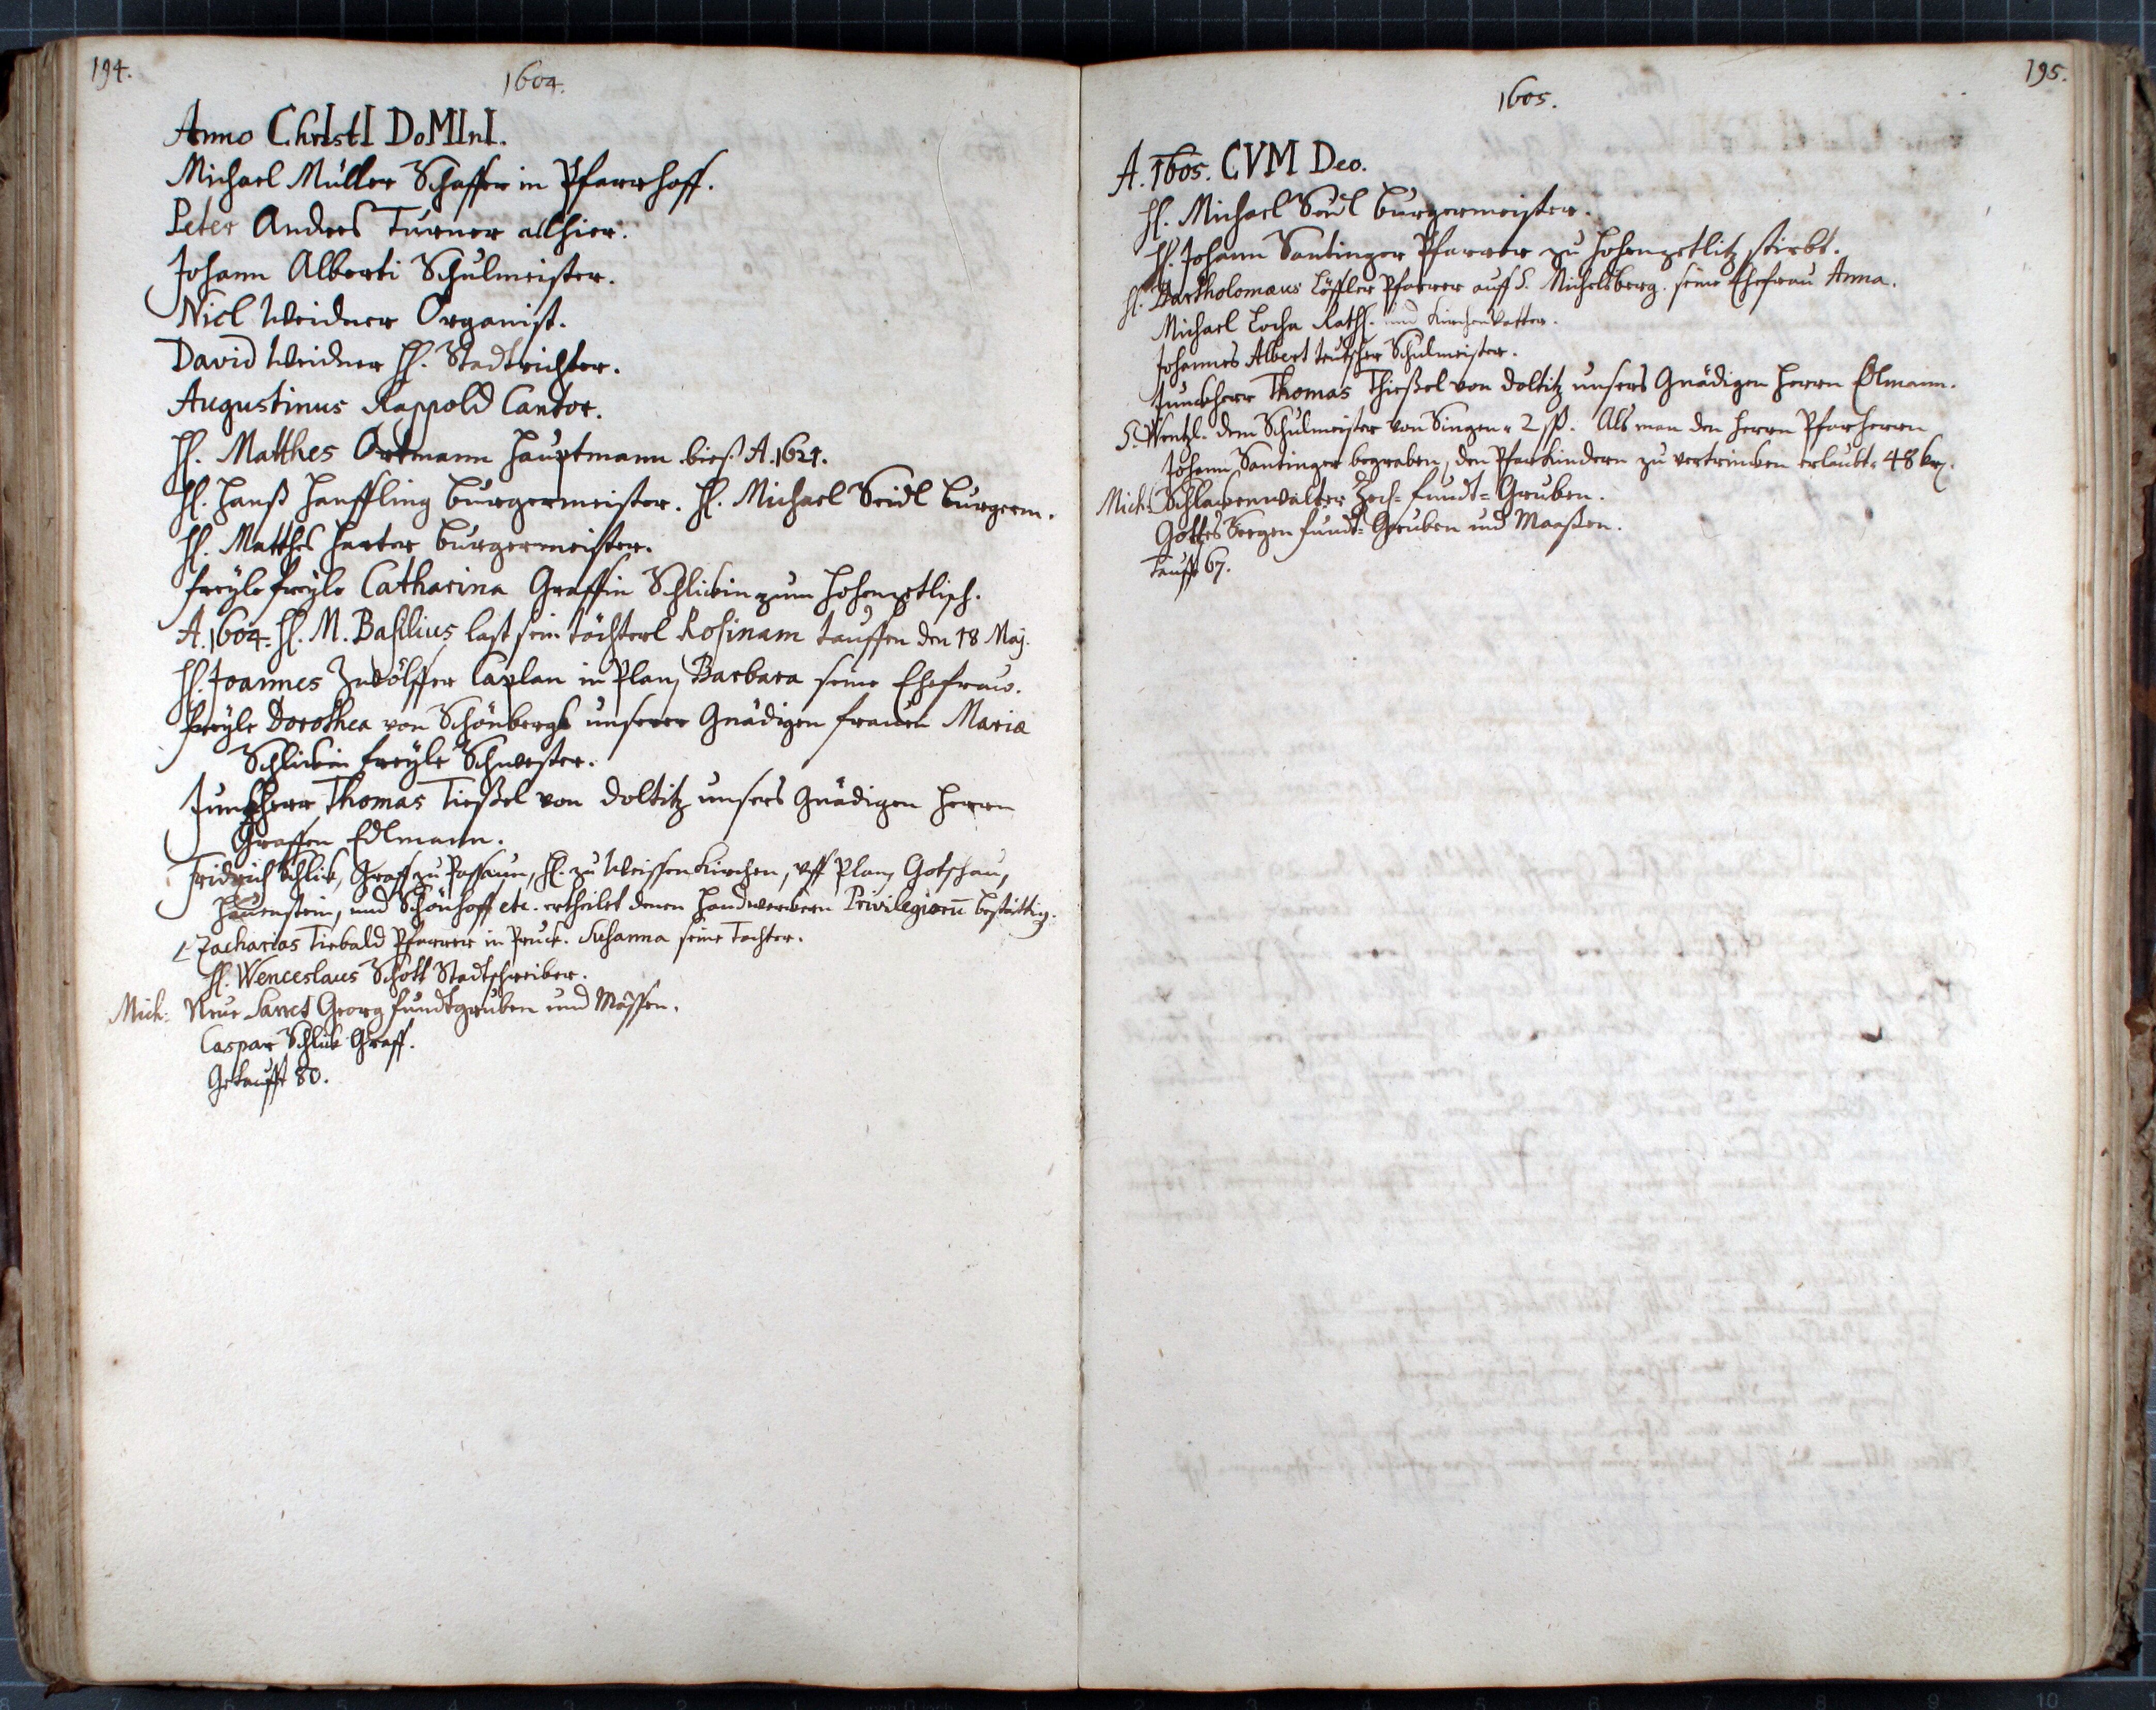 194.
1604.
Anno ChrIstI DoMInI.
Michael Müller Schaffer in Pfarrhoff.
Peter Anders Turner allhier.
Johann Alberti Schulmeister.
Nicl Weidner Organist.
David Weidner H. Stadtrichter.
Augustinus Rappold Cantor.
H. Matthes Ortmann Hauptmann bieß A. 1621.
H. Hanß Hanffling Burgermeister. H. Michael Seidl Burgerm.
H. Matthes Harter Burgermeister.
Freyle Freyle Catharina Graffin Schlickin zum Hohenzetlisch.
A. 1604. H. M. Basilius last sein töchterl Rosinam tauffen den 18 Maj.
H. Joannes Zwölffer Caplan in Plan, Barbara seine Ehefraw.
Freyle Dorothea von Schönbergk unserer Gnädigen Frauen Maria
Schlickin Freyle Schwester.
Junckherr Thomas Tießel von Doltitz unsers Gnädigen Herrn
Graffen Edlmann.
Fridrich Schlick, Graff zu Passaun, H. zu Weissenkirchen, uff Plan, Gotschau,
Hauenstein, und Schönhoff etc. ertheilet denen Handwerckern Privilegiorū bestättig.
Zacharias Tiebald Pfarrer in Pruck. Susanna seine Tochter.
H. Wenceslaus Schott Stadtschreiber.
Mich: Neue Sanct Georg Fundtgruben und Mässen.
Caspar Schlick Graff.
Getaufft 80.
195.
1605.
A. 1605. CVM Deo.
H. Michael Seidl Burgermeister.
H. Johann Santinger Pfarrer zu Hohenzetlitz stirbt.
H. Bartholomæus Löffler Pfarrer auff S. Michelsberg. seine Ehefrau Anna.
Michael Locha Rathh. und Kirchenvatter.
Johannes Albert teutscher Schulmeister.
Junckherr Thomas Thießel von Doltitz unsers Gnädigen Herrn Edlmann.
S. Wentzl. dem Schulmeister von Singen 2 ß. Als man den Herrn Pfarherrn
Johann Santinger begraben, den Pfarkindern zu vertrincken erlaubt 48 kr.
Mich: Schlackenwalter Zech- Fundt- Gruben.
Gottes Seegen Fundt- Gruben und Maaßen.
Tauff 67.